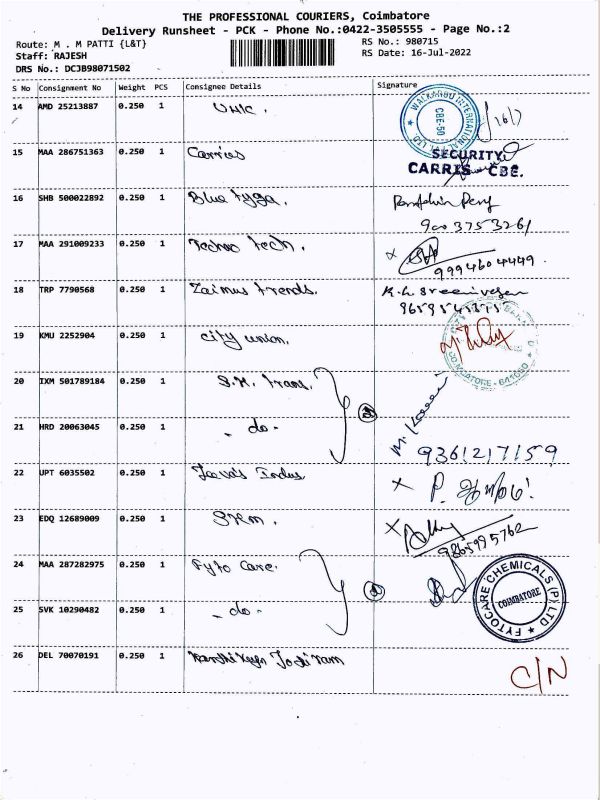 THE PROFESSIONAL COURIERS, Coimbatore
Delivery Runsheet - PCK - Phone No.:0422-3505555 - Page No.:2
Route: M . M PATTI {L&T}
RS No.: 980715
Staff: RAJESH
RS Date: 16-Jul-2022
DRS No.: DCJB98071502
S No Consignment No Weight PCS Consignee Details Signature
14 AMD 25213887 0.250 1
CBE-50
15 MAA 286751363 0.250 1 Carries
SECURITY
CARRIS CBE.
16 SHB 500022892 0.250 1 Blue tyga.
9003753261
17 MAA 291009233 0.250 1 Techno tech.
9994604449
18 TRP 7790568 0.250 1 Zaimus trends.
K.L Sreenivasan
19 KMU 2252904 0.250 1 city union.
COIMBATORE
20 IXM 501789184 0.250 1 S.K. Trans.
21 HRD 20063045 0.250 1 - do -
9361217159
22 UPT 6035502 0.250 1
X P.
23 EDQ 12689009 0.250 1
X
9865995762
24 MAA 287282975 0.250 1 Fyto Care.
FYTOCARE CHEMICALS (P) LTD
COIMBATORE
25 SVK 10290482 0.250 1 - do -
26 DEL 70070191 0.250 1
C/N